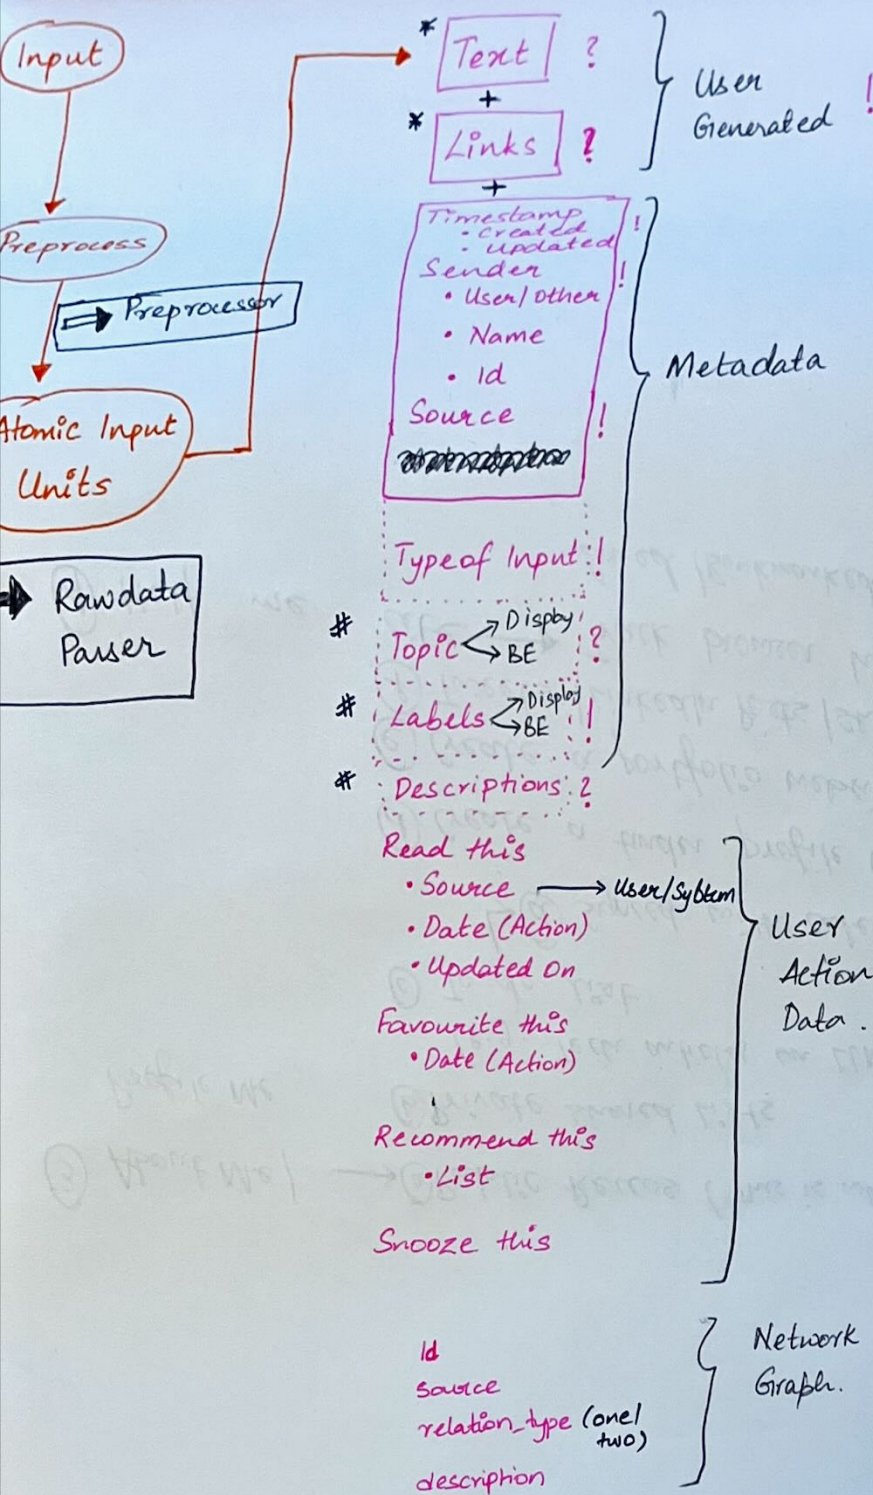 Input
Preprocess
⇒ Preprocessor
Atomic Input
Units
Rawdata
Parser
* Text ?
+
* Links ?
+
User
Generated !
Timestamp !
• Created
• Updated
Sender !
• User/Other
• Name
• Id
Source !
Metadata
Type of Input !
# Topic ?
Display
BE
# Labels !
Display
BE
# Descriptions ?
Read this
• Source → User/System
• Date (Action)
• Updated On
Favourite this
• Date (Action)
Recommend this
• List
Snooze this
User
Action
Data.
Id
source
relation_type (one/
two)
description
Network
Graph.